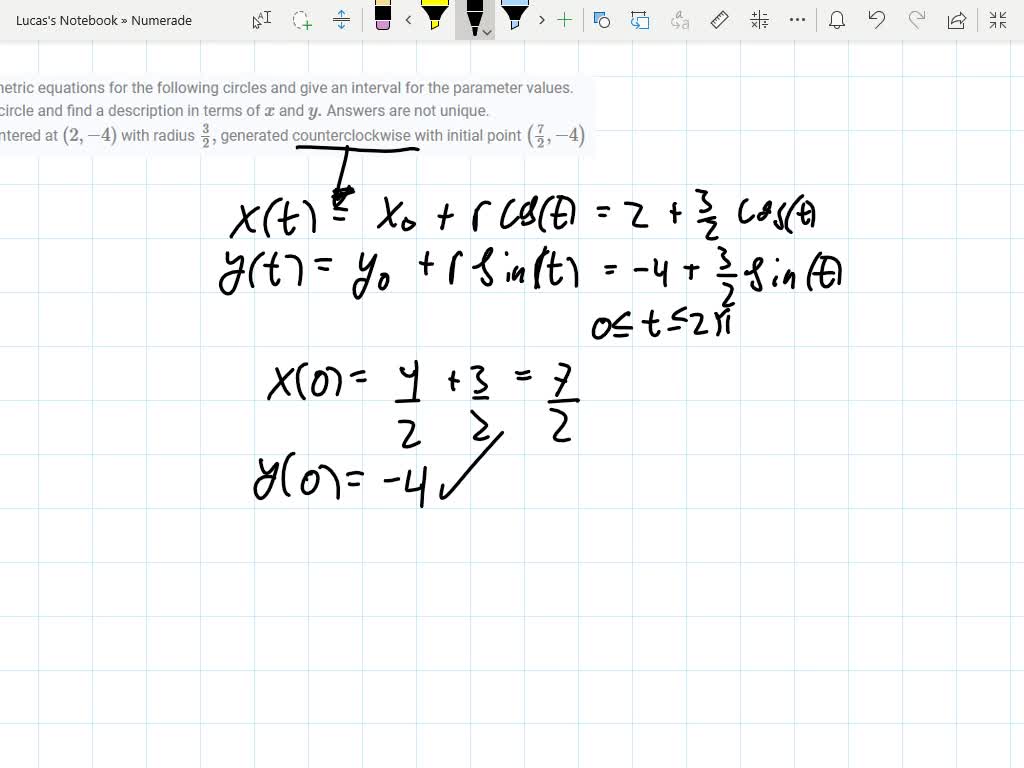 Lucas's Notebook » Numerade
netric equations for the following circles and give an interval for the parameter values.
circle and find a description in terms of x and y. Answers are not unique.
ntered at (2, −4) with radius 3/2, generated counterclockwise with initial point (7/2, −4)
x(t) = x₀ + r cos(t) = 2 + 3/2 cos(t)
y(t) = y₀ + r sin(t) = -4 + 3/2 sin(t)
0 ≤ t ≤ 2π
x(0) = 4/2 + 3/2 = 7/2
y(0) = -4 ✓